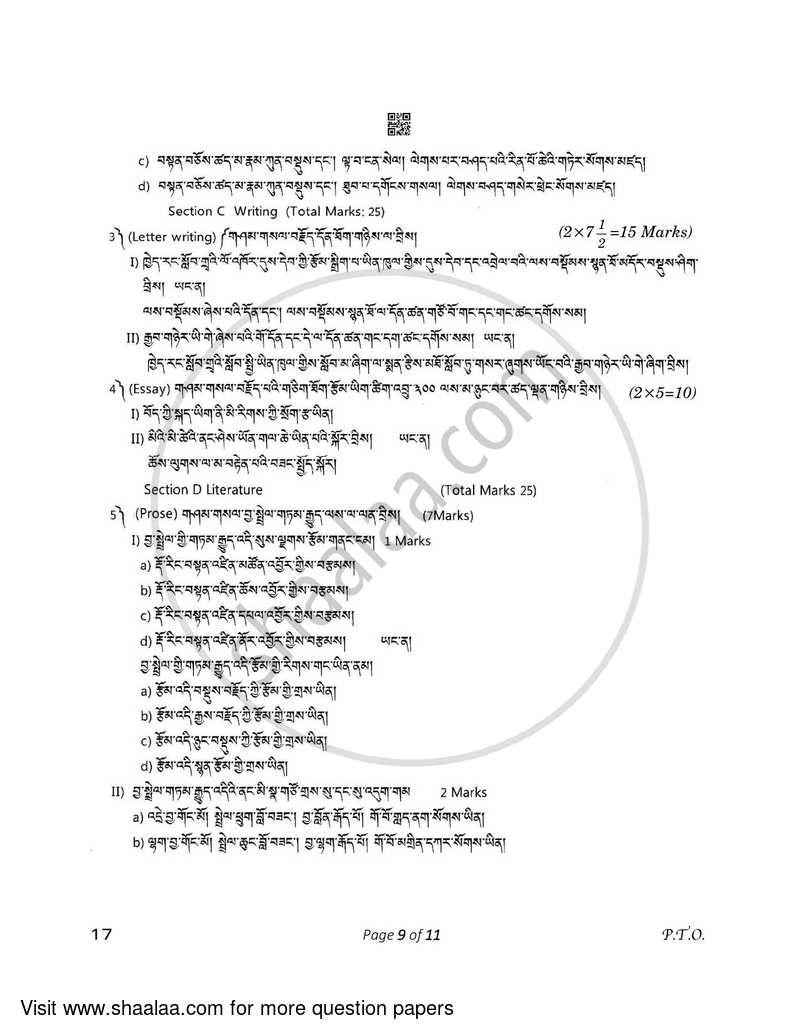 c) བསྟན་བཅོས་ཚད་མ་རྣམ་ཀུན་བསྡུས་དང་། ལྟ་བ་ངན་སེལ། ལེགས་པར་བཤད་པའི་རིན་པོ་ཆེའི་གཏེར་སོགས་མཛད།
d) བསྟན་བཅོས་ཚད་མ་རྣམ་ཀུན་བསྡུས་དང་། ཐུབ་པ་དགོངས་གསལ། ལེགས་བཤད་གསེར་ཕྲེང་སོགས་མཛད།
Section C Writing (Total Marks: 25)
3༽ (Letter writing) གཤམ་གསལ་བརྗོད་དོན་ཐོག་གཉིས་ལ་བྲིས། (2×7 1/2 =15 Marks)
I) ཁྱེད་རང་སློབ་གྲྭའི་ལོ་འཁོར་དུས་དེབ་ཀྱི་རྩོམ་སྒྲིག་པ་ཡིན་ཁུལ་གྱིས་དུས་དེབ་དང་འབྲེལ་བའི་ལས་བསྡོམས་སྙན་ཐོ་མདོར་བསྡུས་ཤིག་
བྲིས། ཡང་ན།
ལས་བསྡོམས་ཞེས་པའི་དོན་དང་། ལས་བསྡོམས་སྙན་ཐོ་ལ་དོན་ཚན་གཙོ་བོ་གང་དང་གང་ཚང་དགོས་སམ།
II) རྒྱབ་གཉེར་ཡི་གེ་ཞེས་པའི་གོ་དོན་དང་དེ་ལ་དོན་ཚན་གང་དག་ཚང་དགོས་སམ། ཡང་ན།
ཁྱེད་རང་སློབ་གྲྭའི་སློབ་སྤྱི་ཡིན་ཁུལ་གྱིས་སློབ་མ་ཞིག་ལ་སྨན་རྩིས་མཐོ་སློབ་ཏུ་གསར་ཞུགས་ཡོང་བའི་རྒྱབ་གཉེར་ཡི་གེ་ཞིག་བྲིས།
4༽ (Essay) གཤམ་གསལ་བརྗོད་པའི་གཅིག་ཐོག་རྩོམ་ཡིག་ཚིག་འབྲུ་ ༢༠༠ ལས་མ་ཉུང་བར་ཚད་ལྡན་གཉིས་བྲིས། (2×5=10)
I) བོད་ཀྱི་སྐད་ཡིག་ནི་མི་རིགས་ཀྱི་སྲོག་རྩ་ཡིན།
II) མིའི་མི་ཚེའི་ནང་ཤེས་ཡོན་གལ་ཆེ་ཡིན་པའི་སྐོར་བྲིས། ཡང་ན།
ཆོས་ལུགས་ལ་མ་བརྟེན་པའི་བཟང་སྤྱོད་སྐོར།
Section D Literature (Total Marks 25)
5༽ (Prose) གཤམ་གསལ་བྱ་སྤྲེལ་གཏམ་རྒྱུད་ལས་ལ་ལན་བྲིས། (7Marks)
I) བྱ་སྤྲེལ་གྱི་གཏམ་རྒྱུད་འདི་སུས་ལྗགས་རྩོམ་གནང་ངམ། 1 Marks
a) རྡོ་རིང་བསྟན་འཛིན་མཚོན་འབྱོར་གྱིས་བརྩམས།
b) རྡོ་རིང་བསྟན་འཛིན་ཆོས་འབྱོར་གྱིས་བརྩམས།
c) རྡོ་རིང་བསྟན་འཛིན་དཔལ་འབྱོར་གྱིས་བརྩམས།
d) རྡོ་རིང་བསྟན་འཛིན་ནོར་འབྱོར་གྱིས་བརྩམས། ཡང་ན།
བྱ་སྤྲེལ་གྱི་གཏམ་རྒྱུད་འདི་རྩོམ་གྱི་རིགས་གང་ཡིན་ནམ།
a) རྩོམ་འདི་བསྡུས་བརྗོད་ཀྱི་རྩོམ་གྱི་གྲས་ཡིན།
b) རྩོམ་འདི་རྒྱས་བརྗོད་ཀྱི་རྩོམ་གྱི་གྲས་ཡིན།
c) རྩོམ་འདི་ཉུང་བསྡུས་ཀྱི་རྩོམ་གྱི་གྲས་ཡིན།
d) རྩོམ་འདི་སྙན་རྩོམ་གྱི་གྲས་ཡིན།
II) བྱ་སྤྲེལ་གཏམ་རྒྱུད་འདིའི་ནང་མི་སྣ་གཙོ་གྲས་སུ་དང་སུ་འདུག་གམ 2 Marks
a) འདྲེ་བྱ་གོང་མོ། སྤྲེལ་ཕྲུག་བློ་བཟང་། བྱ་བློན་རྒོད་པོ། གོ་བོ་གླད་ནག་སོགས་ཡིན།
b) ལྷག་བྱ་གོང་མོ། སྤྲེལ་ཆུང་བློ་བཟང་། བྱ་ལྷག་རྒོད་པོ། གོ་བོ་མགྲིན་དཀར་སོགས་ཡིན།
17 Page 9 of 11 P.T.O.
shaalaa.com
Visit www.shaalaa.com for more question papers